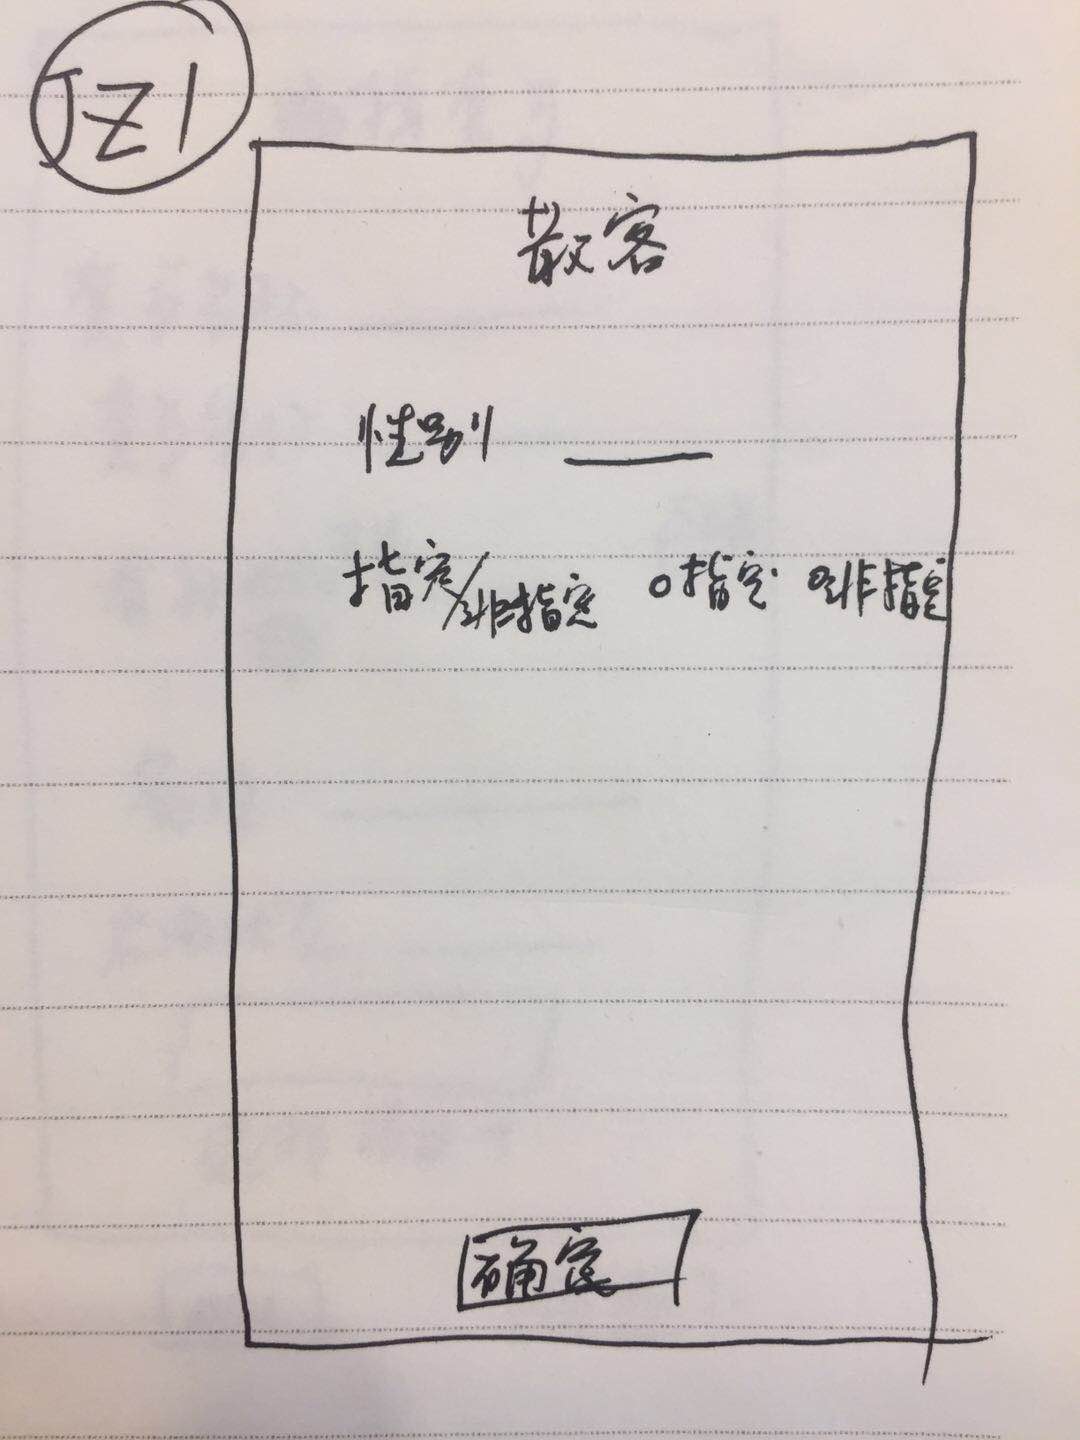 JZ1
散客
性别
指定/非指定 O指定 O非指定
确定